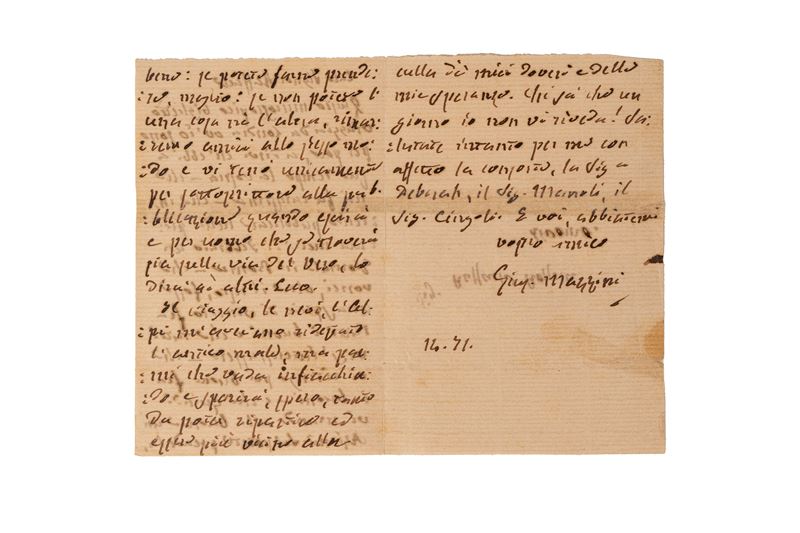 bene: se potete farne prende:
:re, meglio: se non potete l'
una cosa nè l'altra, riman:
:remo amici allo stesso mo:
:do e vi terrò unicamente
per sottoscrittore alla pub:
:blicazione quando escirà
e per uomo che si troverà
più nella via del Vero, lo
dirà ad altri.
Il viaggio, le nevi, l'Al:
:pi mi avevano ridestato
l'antico male, ma par:
:mi che vada infiacchin:
:do e sparirà, spero, tanto
da poter ripartire ed
esser più vicino alla
culla di miei doveri e delle
mie speranze. Chi sà che un
giorno io non vi riveda! Sa:
:lutate intanto per me con
affetto la consorte, la Sig.a
Deborah, il Sig. Manoli, il
Sig. Cingoli. E voi, abbiatemi
vostro amico
Gius. Mazzini
71.